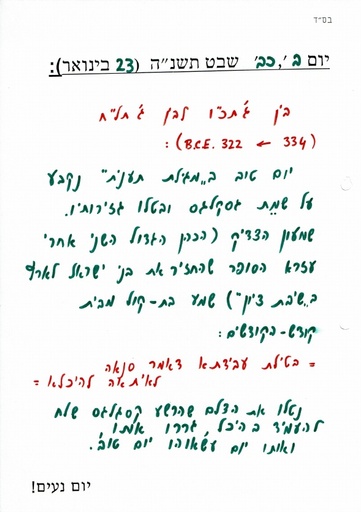 בס"ד
יום ב', כב' שבט תשנ"ה (23 בינואר):
בין ג'תכ"ו לבין ג'תל"ח
(334 → 322 B.C.E.) :
יום טוב ב"מגילת תענית" נקבע
על שמת גסקלגס ובטלו גזירותיו.
שמעון הצדיק (הכהן הגדול השני אחרי
עזרא הסופר שהחזיר את בני ישראל לארץ
ב"שיבת ציון") שמע בת-קול מבית
קודש-הקודשים:
= בטילת עבידתא דאמר סנאה
לאיתאה להיכלא =
נטלו את הצלם שהרשע קסגלגס שלח
להעמיד בהיכל, גררו אותו
ואותו יום עשאוהו יום טוב.
יום נעים!